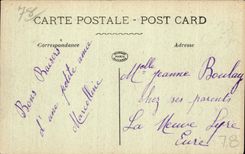 78
CARTE POSTALE - POST CARD
Correspondance
Adresse
Bons Baisers
d'une petite amie
Marcelline
Melle Jeanne Boulay
chez ses parents
La Neuve Lyre
Eure
78